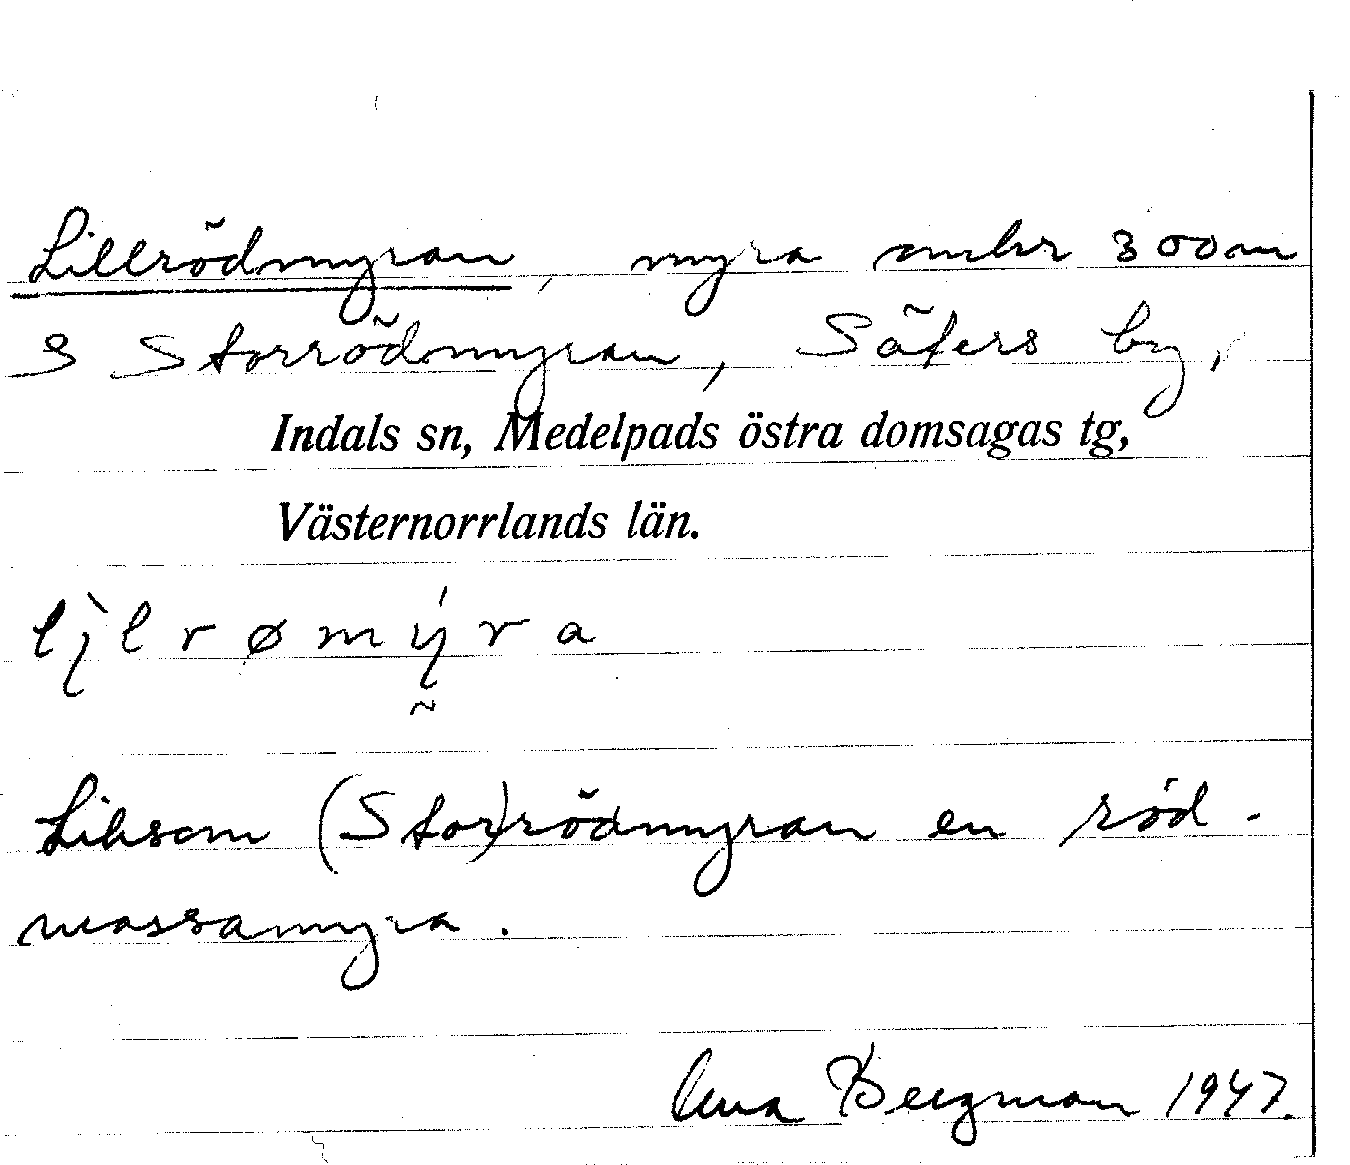 Lillrödmyran, myra omkr 300m
S Storrödmyran, Säters by,
Indals sn, Medelpads östra domsagas tg,
Västernorrlands län.
Liksom (Stor)rödmyran en röd-
mossamyra.
Bergman 1947.